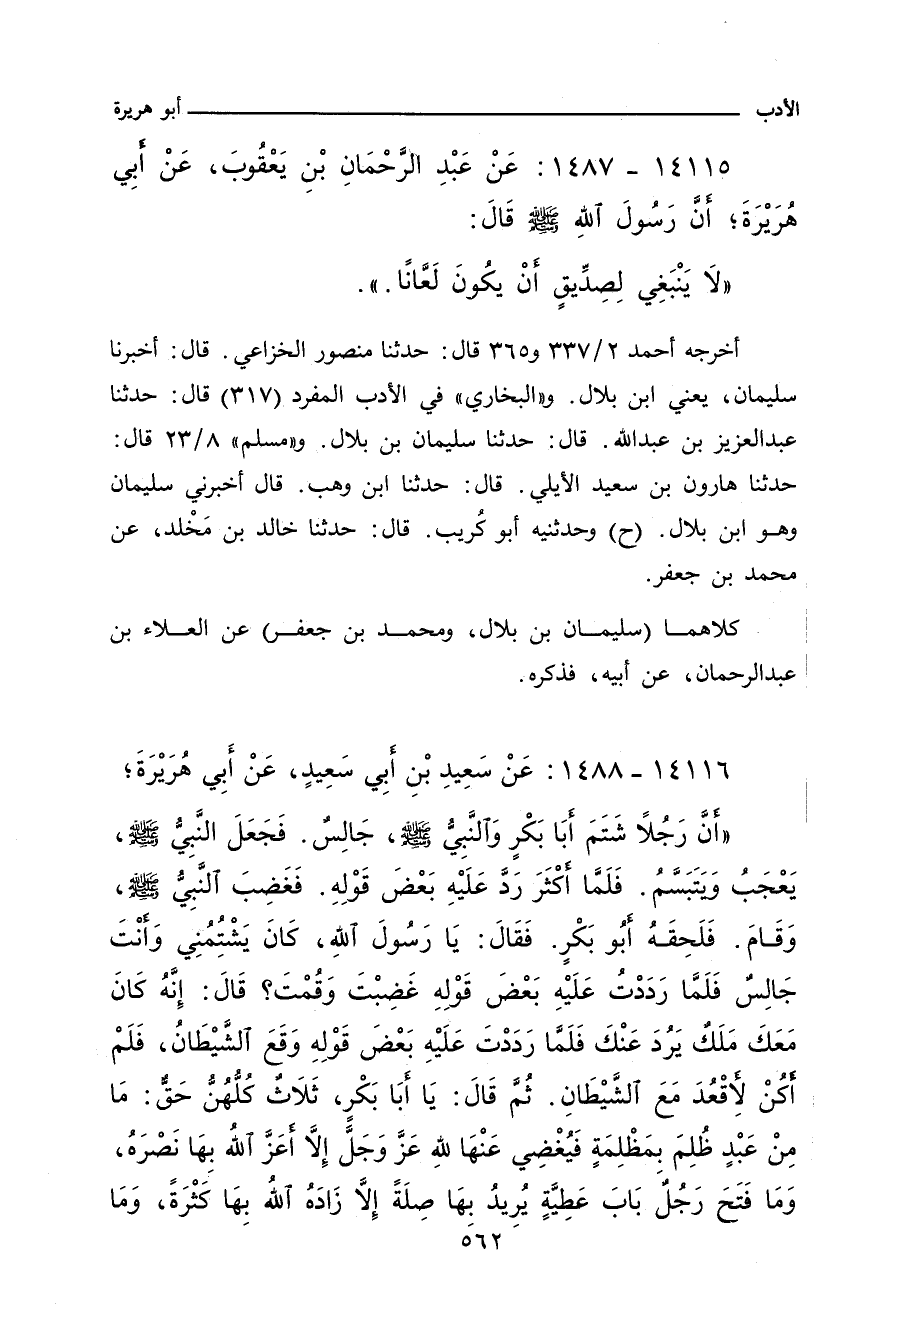 الأدب ــــــــــــــــــــ أبو هريرة
١٤١١٥ - ١٤٨٧: عَنْ عَبْدِ الرَّحْمَانِ بْنِ يَعْقُوبَ، عَنْ أَبِي
هُرَيْرَةَ؛ أَنَّ رَسُولَ ٱللهِ ﷺ قَالَ:
«لَا يَنْبَغِي لِصِدِّيقٍ أَنْ يَكُونَ لَعَّانًا.».
أخرجه أحمد ٣٣٧/٢ و٣٦٥ قال: حدثنا منصور الخزاعي. قال: أخبرنا
سليمان، يعني ابن بلال. و«البخاري» في الأدب المفرد (٣١٧) قال: حدثنا
عبدالعزيز بن عبدالله. قال: حدثنا سليمان بن بلال. و«مسلم» ٢٣/٨ قال:
حدثنا هارون بن سعيد الأيلي. قال: حدثنا ابن وهب. قال أخبرني سليمان
وهو ابن بلال. (ح) وحدثنيه أبو كُريب. قال: حدثنا خالد بن مَخْلد، عن
محمد بن جعفر.
كلاهما (سليمان بن بلال، ومحمد بن جعفر) عن العلاء بن
عبدالرحمان، عن أبيه، فذكره.
١٤١١٦ - ١٤٨٨: عَنْ سَعِيدِ بْنِ أَبِي سَعِيدٍ، عَنْ أَبِي هُرَيْرَةَ؛
«أَنَّ رَجُلاً شَتَمَ أَبَا بَكْرٍ وَٱلنَّبِيُّ ﷺ، جَالِسٌ. فَجَعَلَ النَّبِيُّ ﷺ،
يَعْجَبُ وَيَتَبَسَّمُ. فَلَمَّا أَكْثَرَ رَدَّ عَلَيْهِ بَعْضَ قَوْلِهِ. فَغَضِبَ ٱلنَّبِيُّ ﷺ،
وَقَامَ. فَلَحِقَهُ أَبُو بَكْرٍ. فَقَالَ: يَا رَسُولَ ٱللهِ، كَانَ يَشْتُمُنِي وَأَنْتَ
جَالِسٌ فَلَمَّا رَدَدْتُ عَلَيْهِ بَعْضَ قَوْلِهِ غَضِبْتَ وَقُمْتَ؟ قَالَ: إِنَّهُ كَانَ
مَعَكَ مَلَكٌ يَرُدُ عَنْكَ فَلَمَّا رَدَدْتَ عَلَيْهِ بَعْضَ قَوْلِهِ وَقَعَ ٱلشَّيْطَانُ، فَلَمْ
أَكُنْ لِأَقْعُدَ مَعَ ٱلشَّيْطَانِ. ثُمَّ قَالَ: يَا أَبَا بَكْرٍ، ثَلَاثٌ كُلُّهُنَّ حَقٌّ: مَا
مِنْ عَبْدٍ ظُلِمَ بِمَظْلِمَةٍ فَيُغْضِي عَنْهَا لِلهِ عَزَّ وَجَلَّ إِلَّا أَعَزَّ ٱللهُ بِهَا نَصْرَهُ،
وَمَا فَتَحَ رَجُلٌ بَابَ عَطِيَّةٍ يُرِيدُ بِهَا صِلَةً إِلَّا زَادَهُ ٱللهُ بِهَا كَثْرَةً، وَمَا
٥٦٢